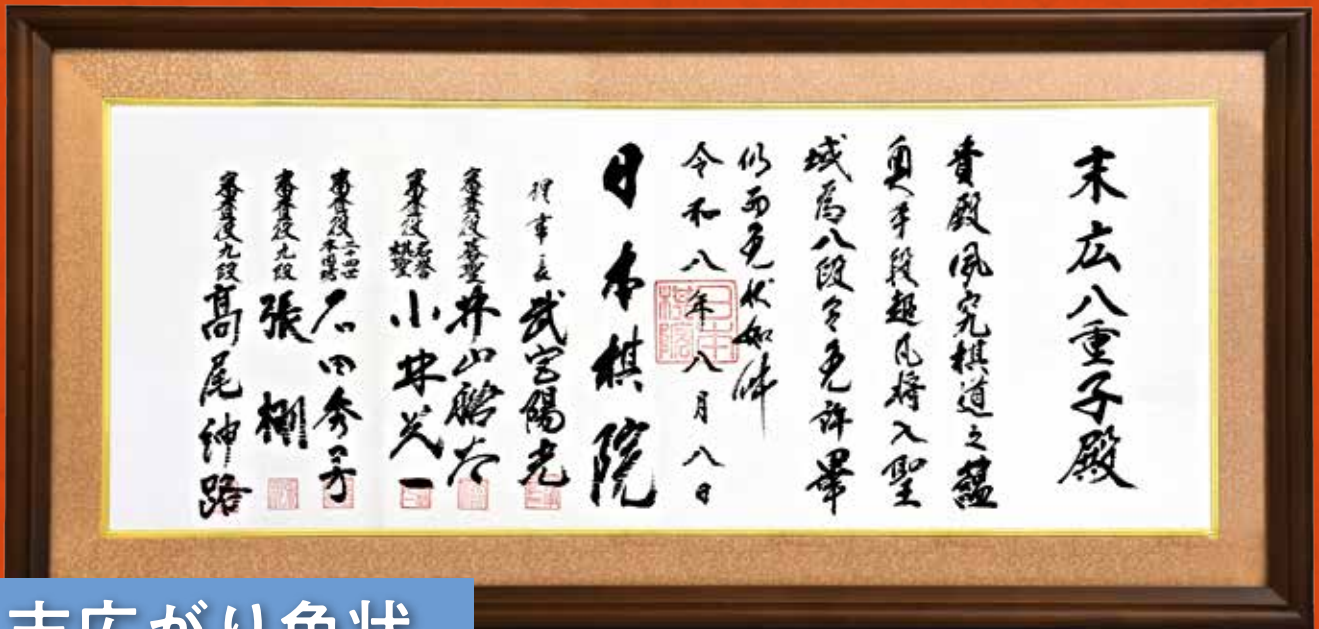 末広八重子殿
貴殿夙究棋道之蘊
奥手段超凡将入聖
域為八段令免許畢
仍而免状如件
令和八年八月八日
日本棋院
日本棋院
理事長 武宮陽光
審査役碁聖 井山裕太
審査役名誉棋聖 小林光一
審査役二十四世本因坊 石田秀芳
審査役九段 張栩
審査役九段 高尾紳路